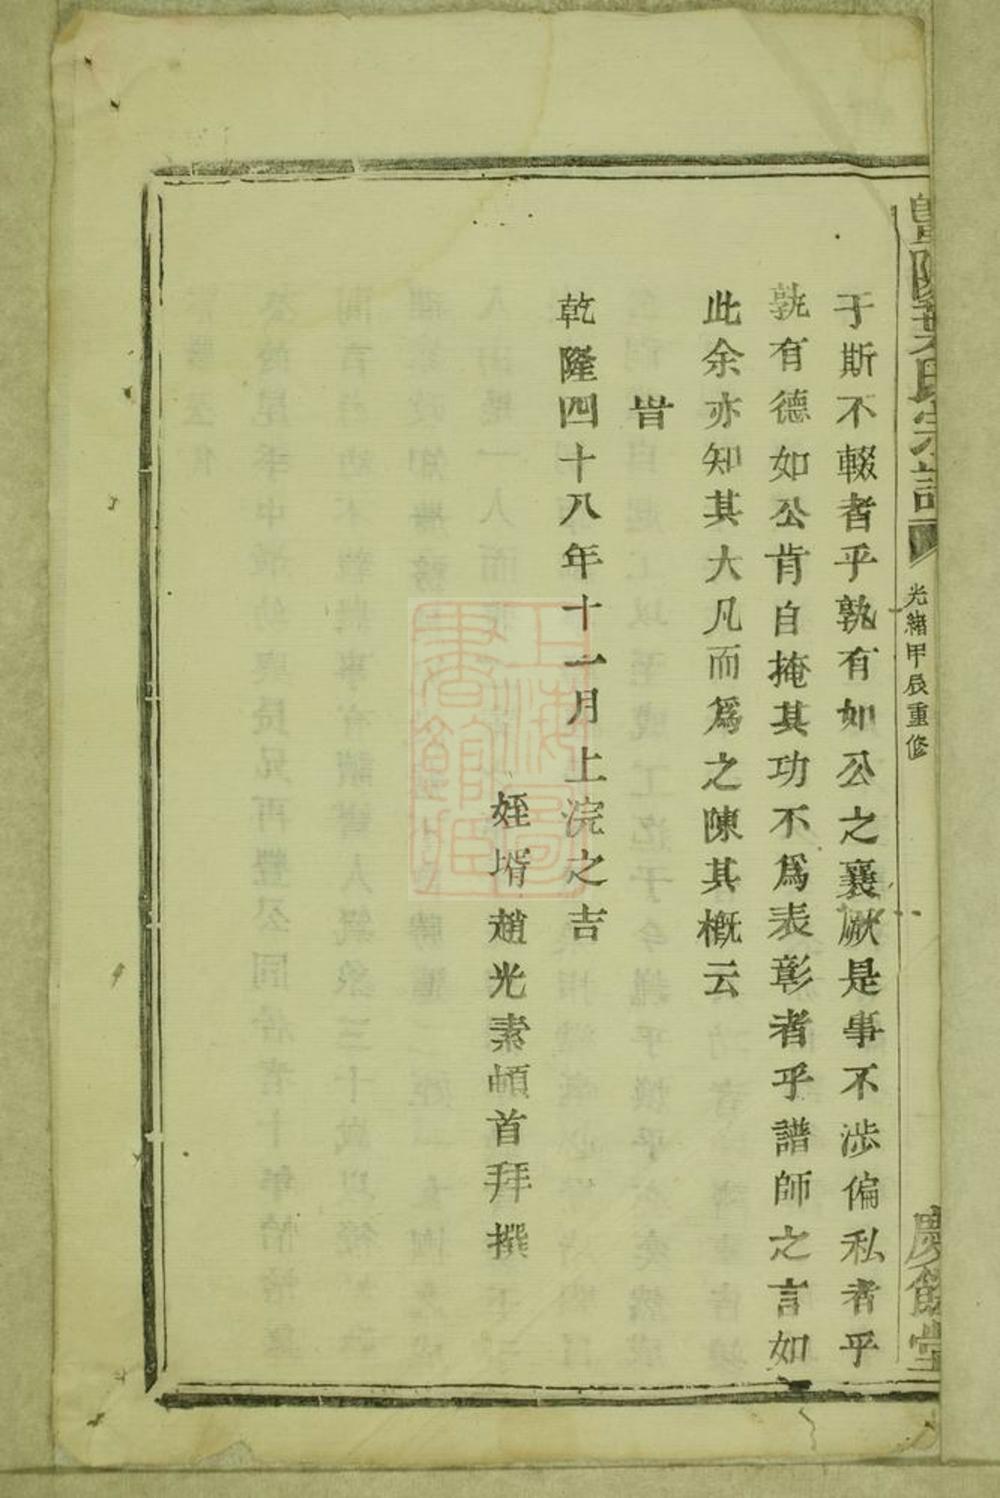 暨陽葉氏宗譜
光緒甲辰重修
慶餘堂
于斯不輟者乎孰有如公之襄厥是事不涉偏私者乎
孰有德如公肯自掩其功不爲表彰者乎譜師之言如
此余亦知其大凡而爲之陳其槪云
旹
乾隆四十八年十一月上浣之吉
姪壻趙光素頓首拜撰
上海圖書館藏